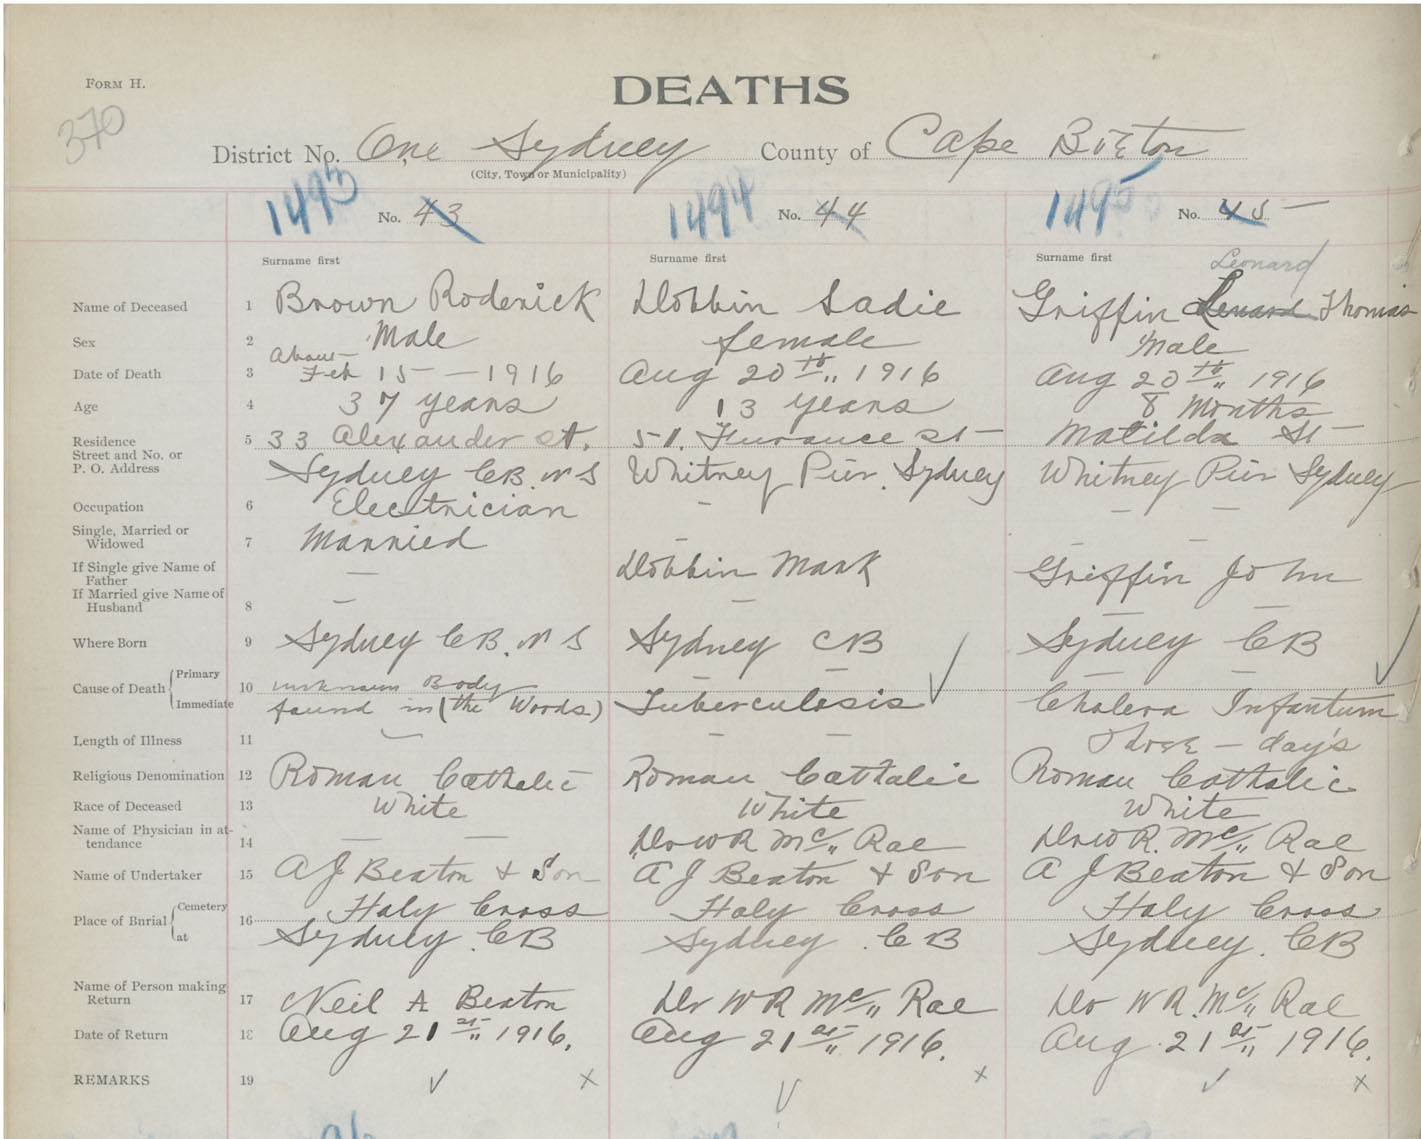 FORM H.
DEATHS
370
District No. One Sydney County of Cape Breton
(City, Town or Municipality)
1493 No. 43 1494 No. 44 1495 No. 45
Surname first Surname first Surname first
Leonard
Name of Deceased 1 Brown Roderick Dobbin Sadie Griffin Lenard Thomas
Sex 2 Male female Male
About
Date of Death 3 Feb 15 - 1916 Aug 20th 1916 Aug 20th 1916
Age 4 37 years 13 years 8 Months
Residence 5 33 Alexander St. 51. St Matilda St
Street and No. or
P. O. Address Sydney CB. N S Whitney Pier. Sydney Whitney Pier Sydney
Occupation 6 Electrician - - -
Single, Married or
Widowed 7 Married - -
If Single give Name of
Father — Dobbin Mark Griffin John
If Married give Name of
Husband 8 — — —
Where Born 9 Sydney CB. N S Sydney CB Sydney CB
Cause of Death Primary 10 unknown Body - -
Immediate found in (the Woods) Tuberculosis Cholera Infantum
Length of Illness 11 - - Three - day's
Religious Denomination 12 Roman Catholic Roman Catholic Roman Catholic
Race of Deceased 13 White White White
Name of Physician in at-
tendance 14 — — Dr W R Mc Rae Dr W R. Mc Rae
Name of Undertaker 15 A J Beaton + Son A J Beaton + Son A J Beaton + Son
Place of Burial Cemetery 16 Holy Cross Holy Cross Holy Cross
at Sydney. CB Sydney. CB Sydney. CB
Name of Person making
Return 17 Neil A Beaton Dr W R Mc Rae Dr W R. Mc Rae
Date of Return 18 Aug 21st 1916. Aug 21st 1916. Aug 21st 1916.
REMARKS 19 ✓ x ✓ x ✓ x